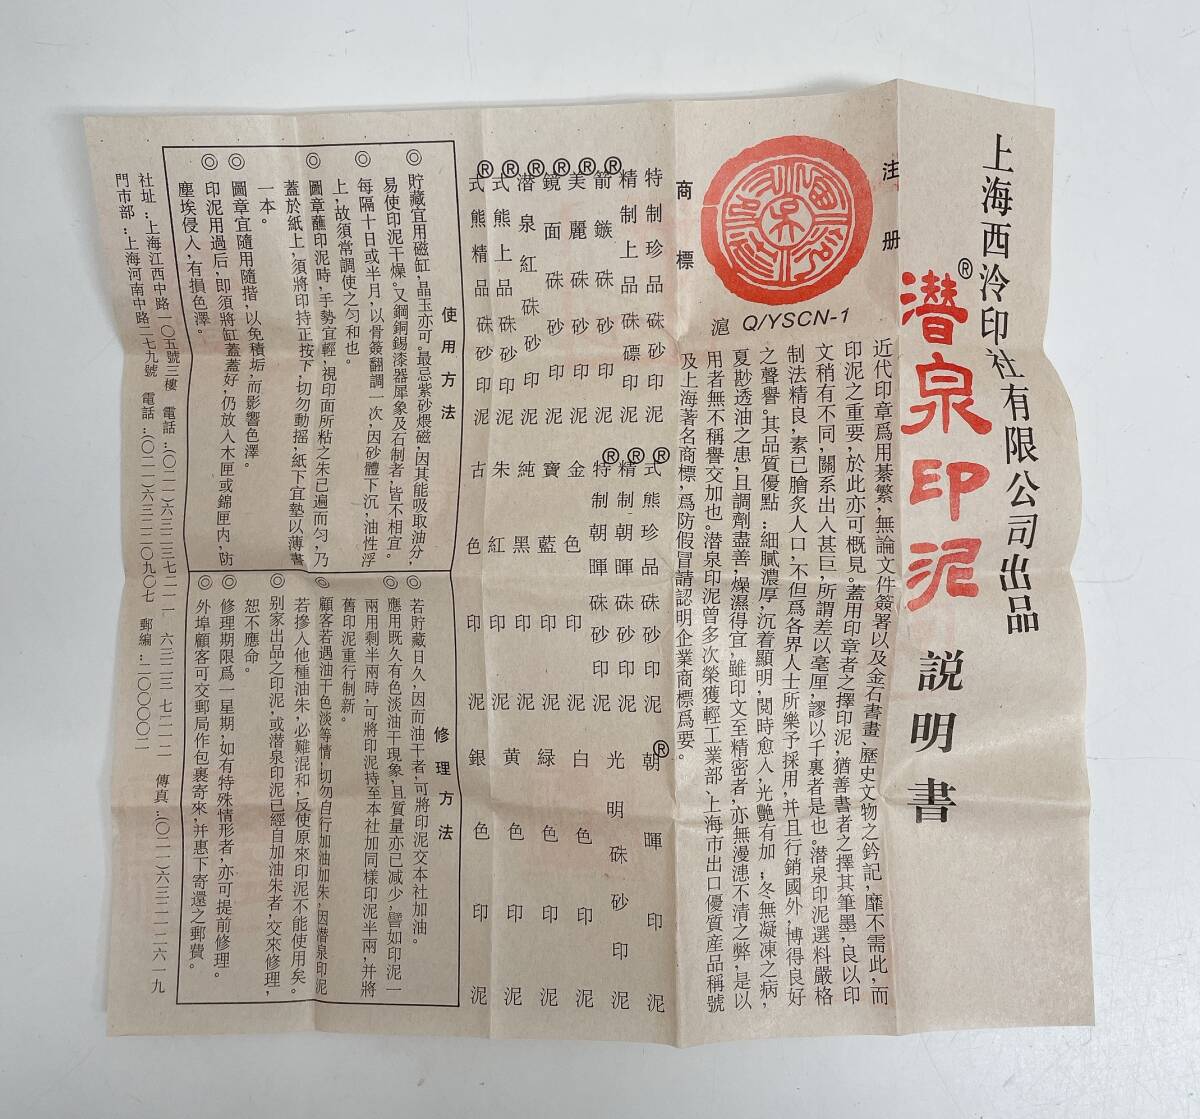 上海西泠印社有限公司出品
潛泉印泥®説明書
注册
商標
滬 Q/YSCN-1
近代印章爲用綦繁，無論文件簽署以及金石書畫、歷史文物之鈐記，靡不需此，而
印泥之重要，於此亦可概見。蓋用印章者之擇印泥，猶善書者之擇其筆墨，良以印
文稍有不同，關系出入甚巨，所謂差以毫厘，謬以千裏者是也。潜泉印泥選料嚴格
制法精良，素已膾炙人口，不但爲各界人士所樂予採用，并且行銷國外，博得良好
之聲譽。其品質優點：細膩濃厚，沉着顯明，閲時愈入，光艷有加；冬無凝凍之病，
夏尠透油之患，且調劑盡善，燥濕得宜，雖印文至精密者，亦無漫漶不清之弊，是以
用者無不稱譽交加也。潜泉印泥曾多次榮獲輕工業部、上海市出口優質産品稱號
及上海著名商標，爲防假冒請認明企業商標爲要。
特制珍品硃砂印泥
精制上品硃磦印泥
®箭鏃硃砂印泥
®美麗硃砂印泥
®鏡面硃砂印泥
®潜泉紅硃砂印泥
®式熊上品硃砂印泥
®式熊精品硃砂印泥
®式熊珍品硃砂印泥
®精制朝暉硃砂印泥
®特制朝暉硃砂印泥
金色印泥
寶藍印泥
純黑印泥
朱紅印泥
古色印泥
®朝暉印泥
光明硃砂印泥
白色印泥
緑色印泥
黄色印泥
銀色印泥
使用方法
◎貯藏宜用磁缸，晶玉亦可。最忌紫砂煨磁，因其能吸取油分，
易使印泥干燥。又鋼銅錫漆器犀象及石制者，皆不相宜。
◎每隔十日或半月，以骨簽翻調一次，因砂體下沉，油性浮
上，故須常調使之匀和也。
◎圖章蘸印泥時，手勢宜輕，視印面所粘之朱已遍而匀，乃
蓋於紙上，須將印持正按下，切勿動摇，紙下宜墊以薄書
一本。
◎圖章宜隨用隨揩，以免積垢，而影響色澤。
◎印泥用過后，即須將缸蓋蓋好，仍放入木匣或錦匣内，防
塵埃侵入，有損色澤。
修理方法
◎若貯藏日久，因而油干者，可將印泥交本社加油。
◎應用既久有色淡油干現象，且質量亦已減少，譬如印泥一
兩用剩半兩時，可將印泥持至本社加同樣印泥半兩，并將
舊印泥重行制新。
◎顧客若遇油干色淡等情，切勿自行加油加朱，因潜泉印泥
若摻入他種油朱，必難混和，反使原來印泥不能使用矣。
◎别家出品之印泥，或潜泉印泥已經自加油朱者，交來修理，
恕不應命。
◎修理期限爲一星期，如有特殊情形者，亦可提前修理。
◎外埠顧客可交郵局作包裹寄來，并惠下寄還之郵費。
社址：上海江西中路一〇五號三樓 電話：(〇二一)六三二三七二一一 六三二三七二一二 傳真：(〇二一)六三二一二六一九
門市部：上海河南中路二七九號 電話：(〇二一)六三二二〇九〇七 郵編：二〇〇〇〇二